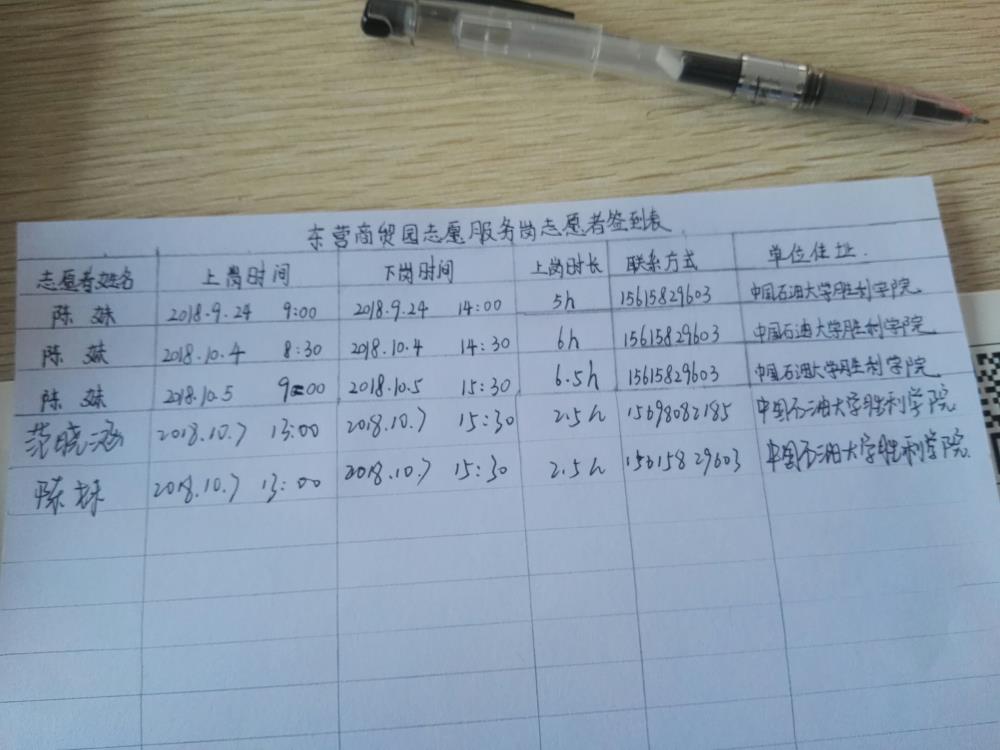 东营商贸园志愿服务岗志愿者签到表
志愿者姓名 上岗时间 下岗时间 上岗时长 联系方式 单位住址.
陈姝 2018.9.24 9:00 2018.9.24 14:00 5h 15615829603 中国石油大学胜利学院
陈姝 2018.10.4 8:30 2018.10.4 14:30 6h 15615829603 中国石油大学胜利学院
陈姝 2018.10.5 9:00 2018.10.5 15:30 6.5h 15615829603 中国石油大学胜利学院
范晓涵 2018.10.7 13:00 2018.10.7 15:30 2.5h 15698082185 中国石油大学胜利学院
陈姝 2018.10.7 13:00 2018.10.7 15:30 2.5h 15615829603 中国石油大学胜利学院.